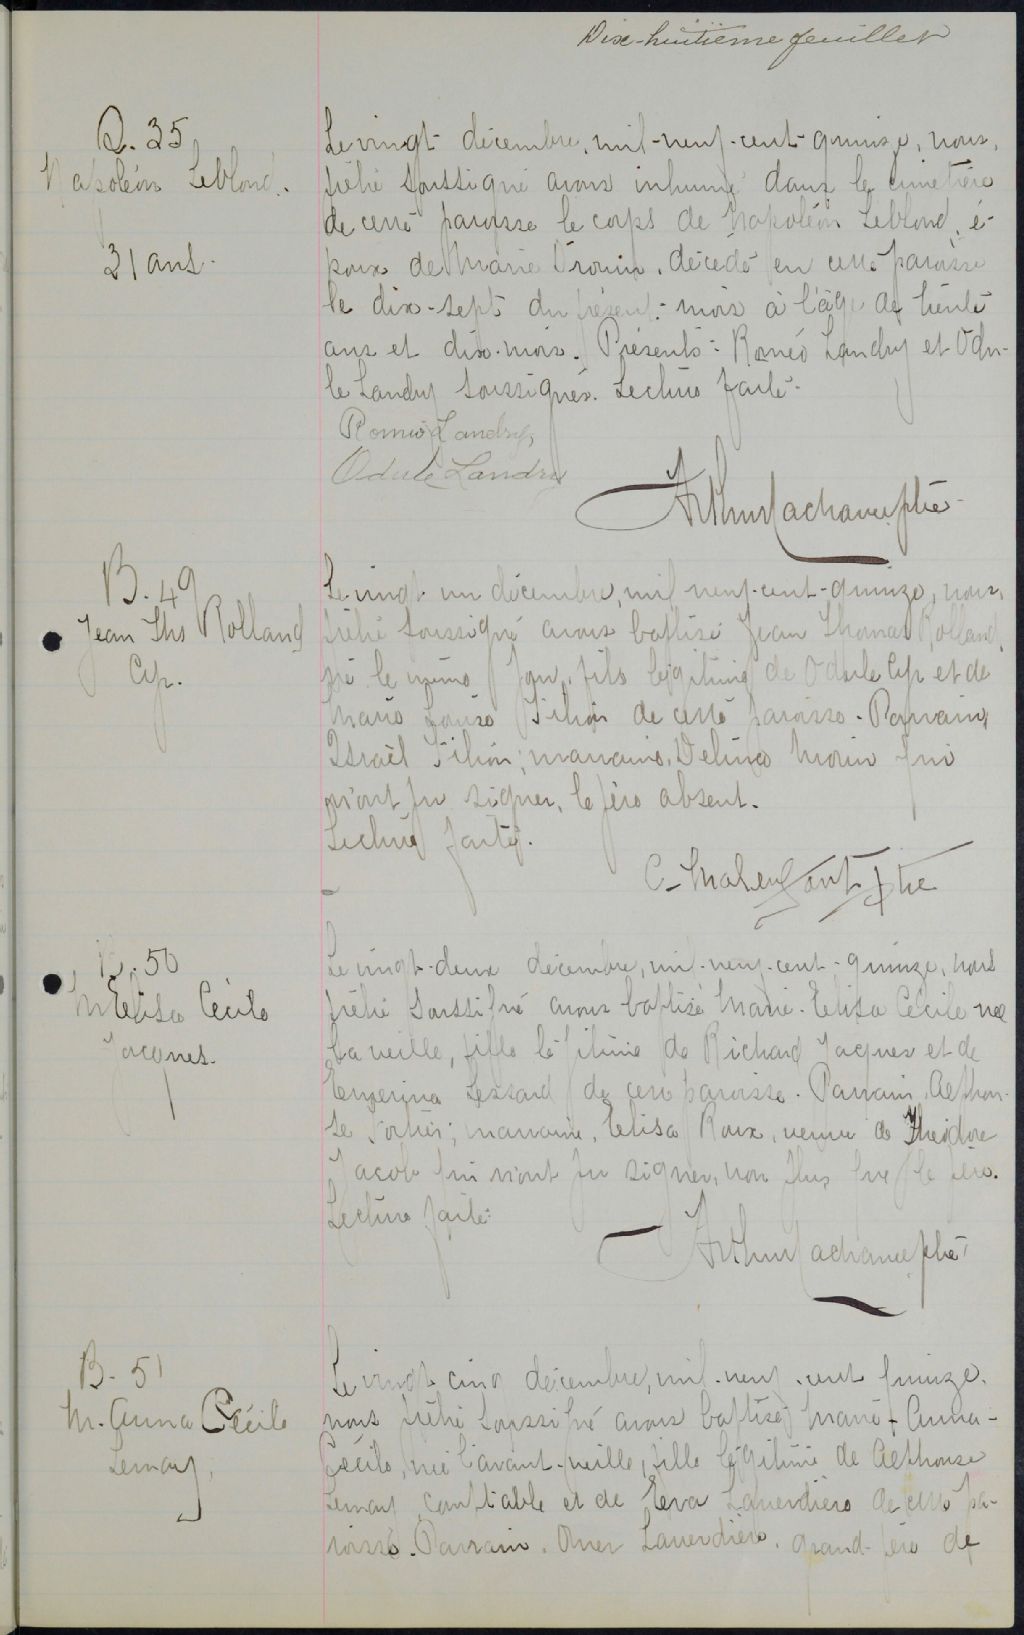 Dix-huitième feuillet
S. 35
Napoléon Leblond.
31 ans.
Le vingt décembre, mil-neuf-cent-quinze, nous,
prêtre soussigné avons inhumé dans le cimetière
de cette paroisse le corps de Napoléon Leblond, é-
poux de Marie Drouin, décédé en cette paroisse
le dix-sept du présent mois à l'âge de trente
ans et dix mois. Présents: Roméo Landry et Odu-
le Landry soussignés. Lecture faite.
Roméo Landry,
Odule Landry
Arthur Lachance ptre
B. 49
Jean Ths Rolland
Cyr.
Le vingt un décembre, mil neuf-cent-quinze, nous,
prêtre soussigné avons baptisé Jean Thomas Rolland,
né le même jour, fils légitime de Odule Cyr et de
Marie Louise Filion de cette paroisse. Parrain,
Israël Filion; marraine, Délima Morin qui
n'ont pu signer, le père absent.
Lecture faite.
C. Malenfant Ptre
B. 50
M Elisa Cécile
Jacques.
Le vingt-deux décembre, mil-neuf-cent-quinze, nous
prêtre soussigné avons baptisé Marie-Elisa Cécile née
la veille, fille légitime de Richard Jacques et de
Lessard de cette paroisse. Parrain, Alphon-
se Fortier; marraine, Elisa Roux, veuve de Théodore
Jacob qui n'ont pu signer, non plus que le père.
Lecture faite:
Arthur Lachance ptre
B. 51
M. Anna Cécile
Lemay,
Le vingt cinq décembre, mil-neuf-cent quinze,
nous prêtre soussigné avons baptisé Marie-Anna-
Cécile, née l'avant-veille, fille légitime de Alphonse
Lemay, comptable et de Eva Laverdière de cette pa-
roisse. Parrain, Omer Laverdière, grand-père de